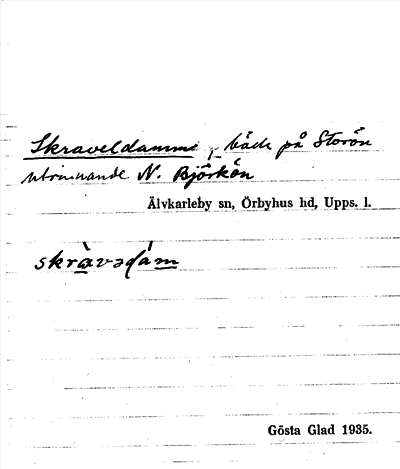 Skraveldamm, bäck på Storön
utrinnande N. Björkön
Älvkarleby sn, Örbyhus hd, Upps. l.
skràvədám
Gösta Glad 1935.